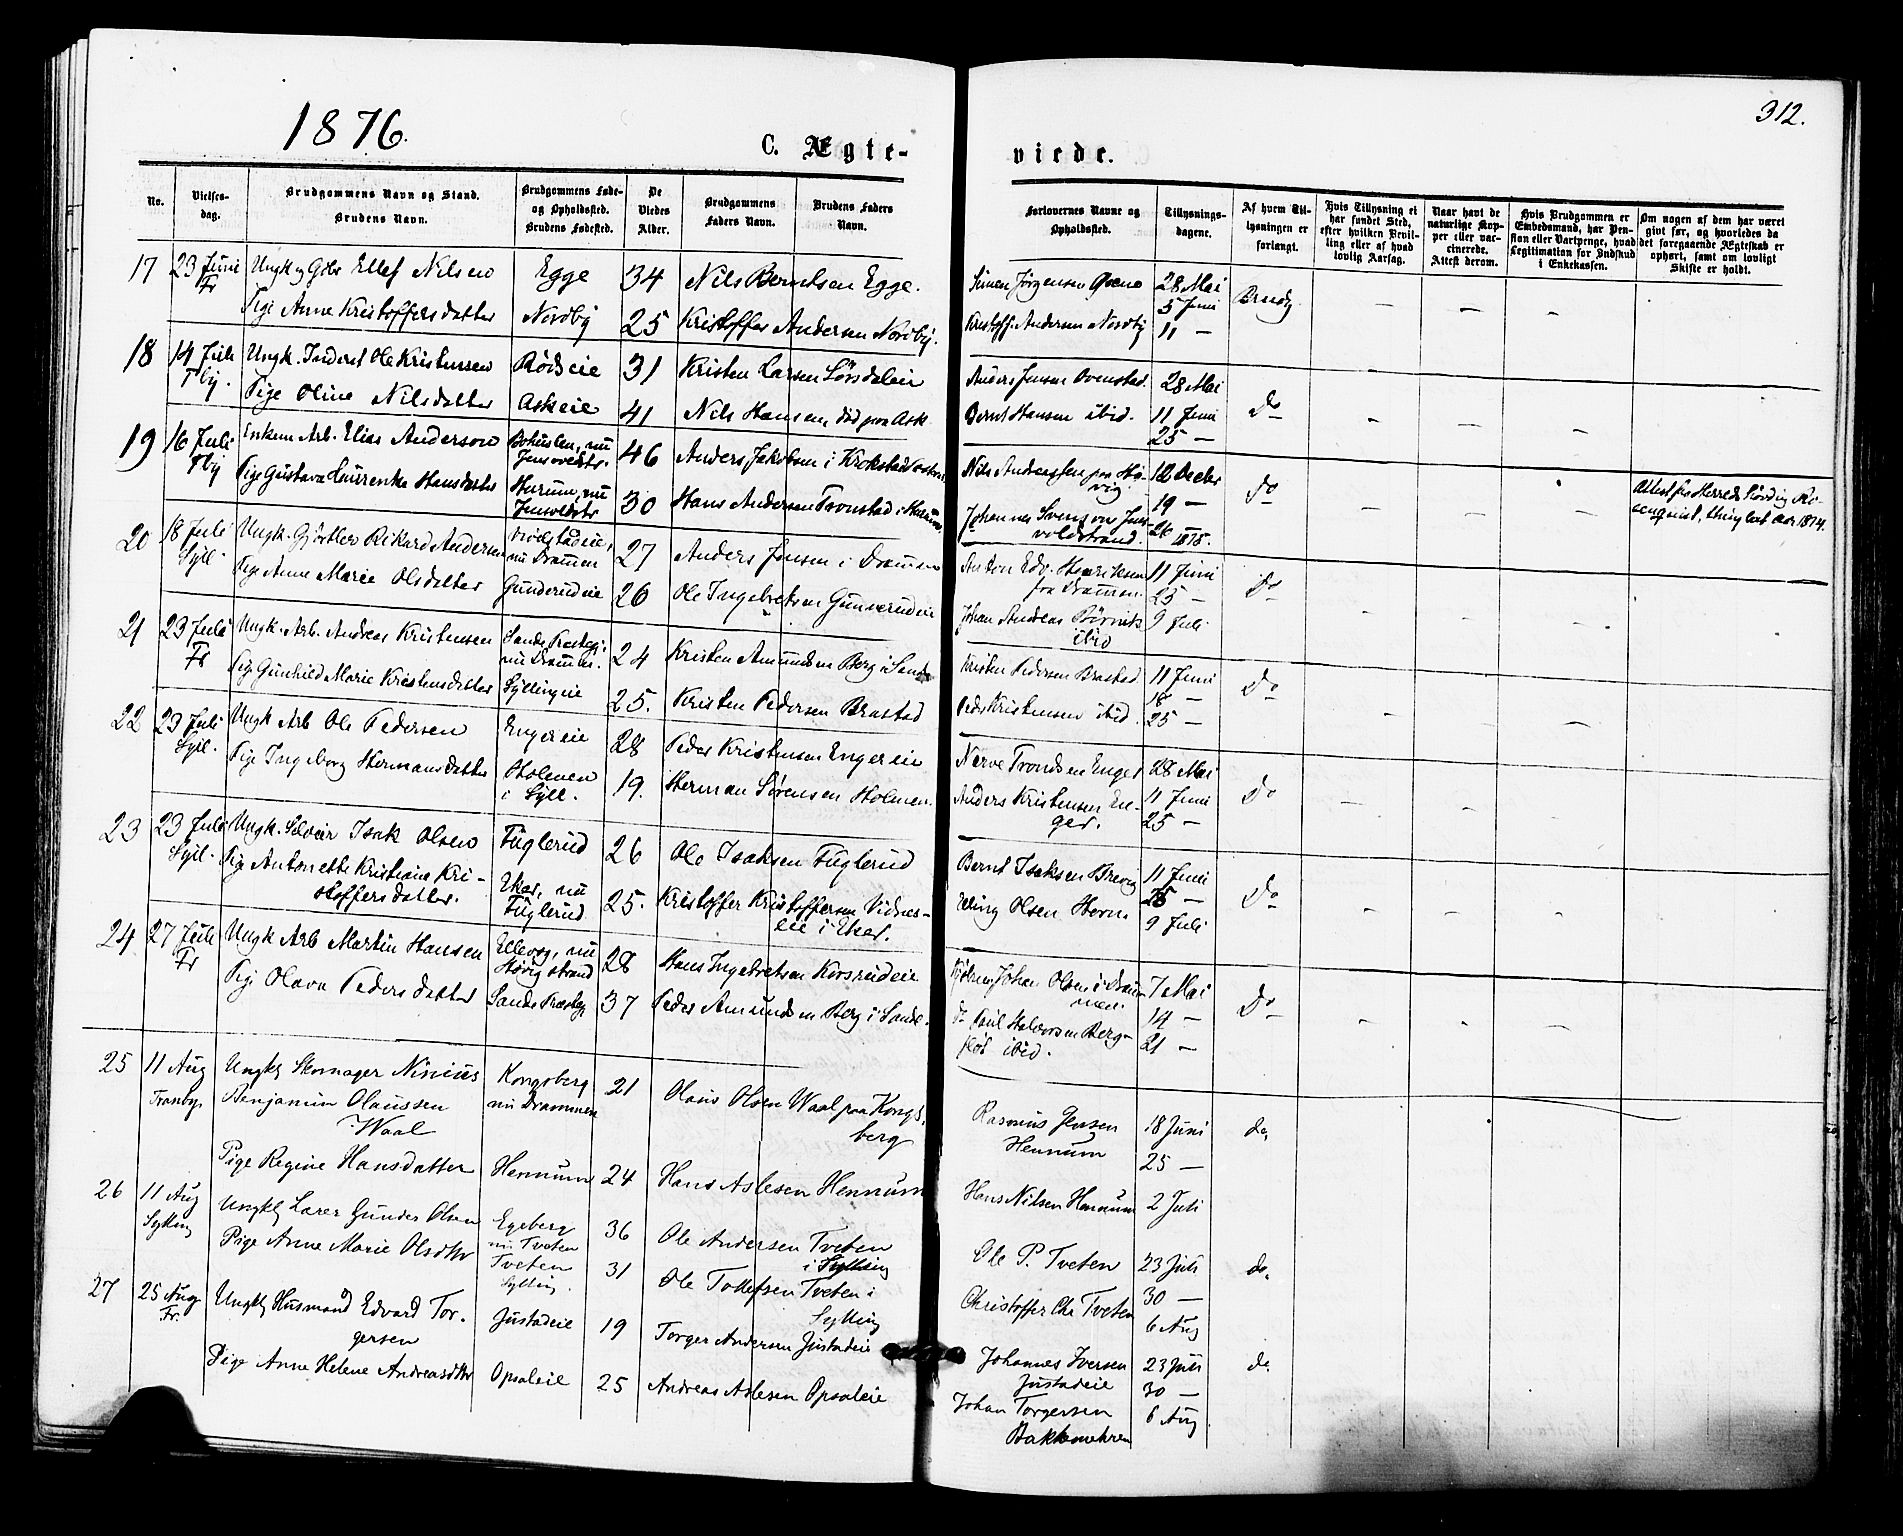 1876.
C. Ægte-
No.
Vielses-
dag.
Brudgommens Navn og Stand.
Brudens Navn.
Brudgommens Føde-
og Opholdssted.
Brudens Fødested.
De
Viedes
Alder.
Brudgommens
Faders Navn.
Brudens Faders
Navn.
17 23 Juni Ungk og Gbr Ellef Nilsen Egge 34 Nils Berntsen Egge.
Fr
Pige Anne Kristoffersdatter Nordby 25 Kristoffer Andersen Nordby.
18 14 Juli Ungk. Inderst Ole Kristensen Rødseie 31 Kristen Larsen Sørsdaleie
Tby.
Pige Oline Nilsdatter Askeie 41 Nils Hansen, død paa Ask
19 16 Juli Enkem. Arb. Elias Anderson Bohuslen, nu 46 Anders Jakobsen i Krokstad
Tby
Pige Gustava Laurenka Hansdatter Hurum, nu 30 Hans Andersen Tronstad i Hurum
20 18 Juli Ungk. Gjørtler Rikard Andersen nu Drammen 27 Anders Jensen i Drammen
Syll.
Pige Anne Marie Olsdatter Gunderudeie 26 Ole Ingebretsen Gunnerudeie
21 23 Juli Ungk. Arb. Andreas Kristensen Sande Præstegj.
nu Drammen. 24 Kristen Amundsen Berg i Sande
Fr
Pige Gunhild Marie Kristensdatter Syllingeie 25. Kristen Pedersen Brastad
22 23 Juli Ungk Arb Ole Pedersen Engereie 28 Peder Kristensen Engereie
Syll.
Pige Ingeborg Hermansdatter Holmen
i Syll. 19. Herman Sørensen Holmen.
23 23 Juli Ungk. Selveier Isak Olsen Fuglerud 26 Ole Isaksen Fuglerud
Syll.
Pige Antonette Kristiane Kri-
stoffersdatter. Eker, nu
Fuglerud 25. Kristoffer Kristoffersen Vidnes-
eie i Eker.
24 27 Juli Ungk Arb Martin Hansen nu
Høvigstrand 28 Hans Ingebretsen Korsrudeie
Fr
Pige Olava Pedersdatter Sande Præstegj 37 Peder Amundsen Berg i Sande.
25 11 Aug Ungkl Skomager Ninius Kongsberg 21 Olaus Olsen Waal paa Kongs.
Tranby. Benjamin Olaussen nu Drammen berg
Waal
Pige Regine Hansdatter Hennum 24 Hans Aslesen Hennum
26 11 Aug Ungkl Lærer Gunder Olsen Egeberg 36 Ole Andersen Tveten
Sylling nu Tveten i Sylling
Pige Anne Marie Olsdtr Tveten 31 Ole Tollefsen Tveten i
Sylling. Sylling
27 25 Aug Ungkl Husmand Edvard Tor- Justadeie 19 Torger Andersen Justadeie
Fr. gersen
Pige Anne Helene Andreasdtr Opsaleie 25 Andreas Aslesen Opsaleie
312.
viede.
Forlovernes Navne og
Opholdssted.
Tillysnings-
dagene.
Af hvem Til-
lysningen er
forlangt.
Hvis Tillysning ei
har fundet Sted,
efter hvilken Bevil-
ling eller af hvad
lovlig Aarsag.
Naar havt de
naturlige Kop-
per eller vac-
cinerede.
Attest derom.
Hvis Brudgommen er
Embedsmand, har Pen-
sion eller Vartpenge, hvad
Legitimation for Indskud
i Enkekassen.
Om nogen af dem har været
givt før, og hvorledes da
det foregaaende Ægteskab er
ophørt, samt om lovligt
Skifte er holdt.
Simen Jørgensen 28 Mai Brudg. — — —
5 Juni
Kristoff. Andersen Nordby 11 —
Anders Jensen Ovenstad. 28 Mai Do — — —
Bernt Hansen ibid. 11 Juni
25 —
Nils Andersen paa Hø-
vig 12 Decbr Do — — — Attest fra Herreds Høvding Ro-
senqvist, thinglæst 1874.
19 —
Johannes Svenson 26 1875.
Anton Edv. Henriksen 11 Juni Do — — —
fra Drammen. 25 —
Johan Andreas 9 Juli
ibid
Kristen Pedersen Brastad. 11 Juni Do — — —
18 —
Peder Kristensen ibid. 25 —
Nerve Trondsen Enger 28 Mai Do — — —
Anders Kristensen En-
ger. 11 Juni
25 —
Bernt Isaksen Brevig 11 Juni Do — — —
25 —
Elling Olsen Horn. 9 Juli
Johan Olsen i Dram-
men. 7 Mai Do — — —
14 —
do Paul Halvorsen Berg-
flot ibid. 21 —
Rasmus Jensen 18 Juni do.
Hennum 25 —
Hans Nilsen Hennum 2 Juli
Ole P. Tveten 23 Juli do.
30 —
Christoffer Chr Tveten 6 Aug
Johannes Iversen 23 Juli do.
Justadeie 30 —
Johan Torgersen 6 Aug.
Bakkemehren